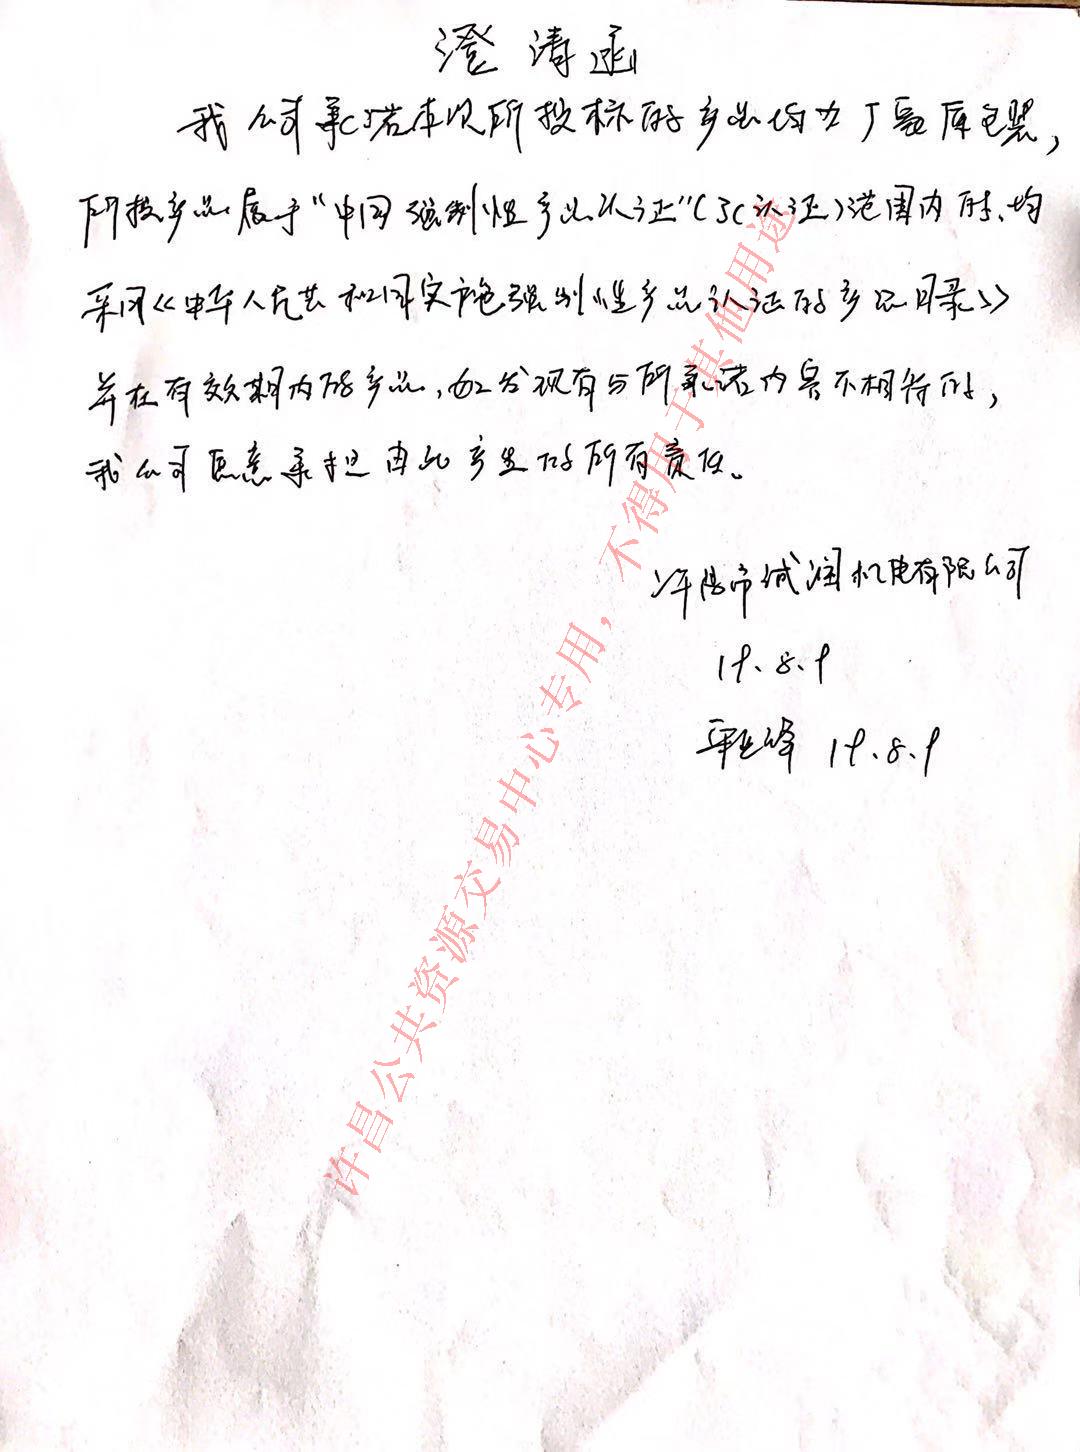 澄清函
我公司承诺本次所投标的产品均为厂家原包装,
所投产品属于“中国强制性产品认证”(3C认证)范围内的、均
采用《中华人民共和国实施强制性产品认证的产品目录》
并在有效期内的产品,如发现有与所承诺内容不相符的,
我公司愿意承担由此产生的所有责任。
市诚润机电有限公司
19.8.9
19.8.9
许昌公共资源交易中心专用,不得用于其他用途